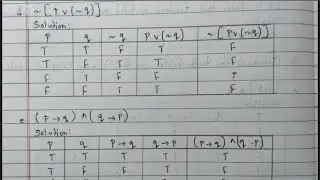 d ~[p∨(~q)]
Solution:
p q ~q p∨(~q) ~[p∨(~q)]
T T F T F
T F T T F
F T F F T
F F T T F
e (p→q) ∧(q→p)
Solution:
p q p→q q→p (p→q) ∧(q→p)
T T T T T
T F F T F